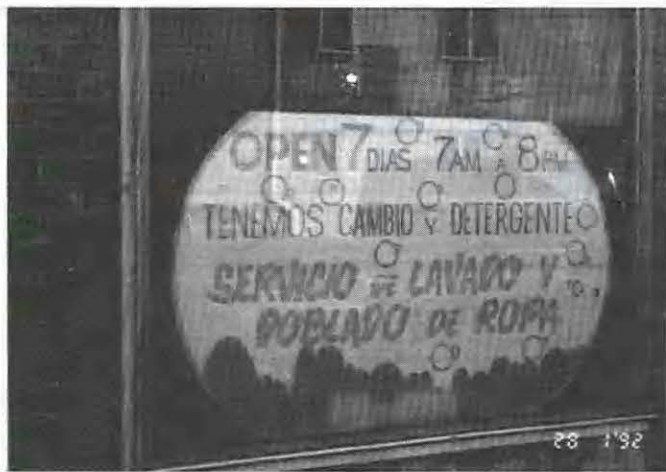 OPEN 7 DIAS 7AM A 8PM
TENEMOS CAMBIO Y DETERGENTE
SERVICIO DE LAVADO Y
DOBLADO DE ROPA
28 1'92